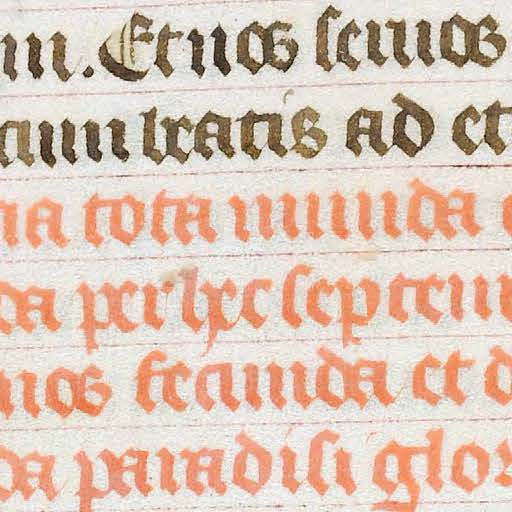 Et nos servos
cum beatis ad et
tota munda
per hec septem
nos fecunda et
paradisi glor